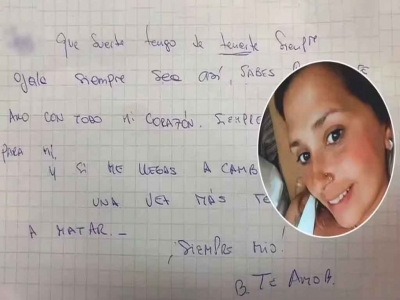 Que suerte tengo de tenerte siempre
Ojala siempre sea así, SABES TE
AMO CON TODO MI CORAZÓN. SIEMPRE
para mí.
Y SI ME LLEGAS A CAMB
UNA VEZ MÁS TE
A MATAR.-
¡SIEMPRE MIO!
B. TE AMO B.